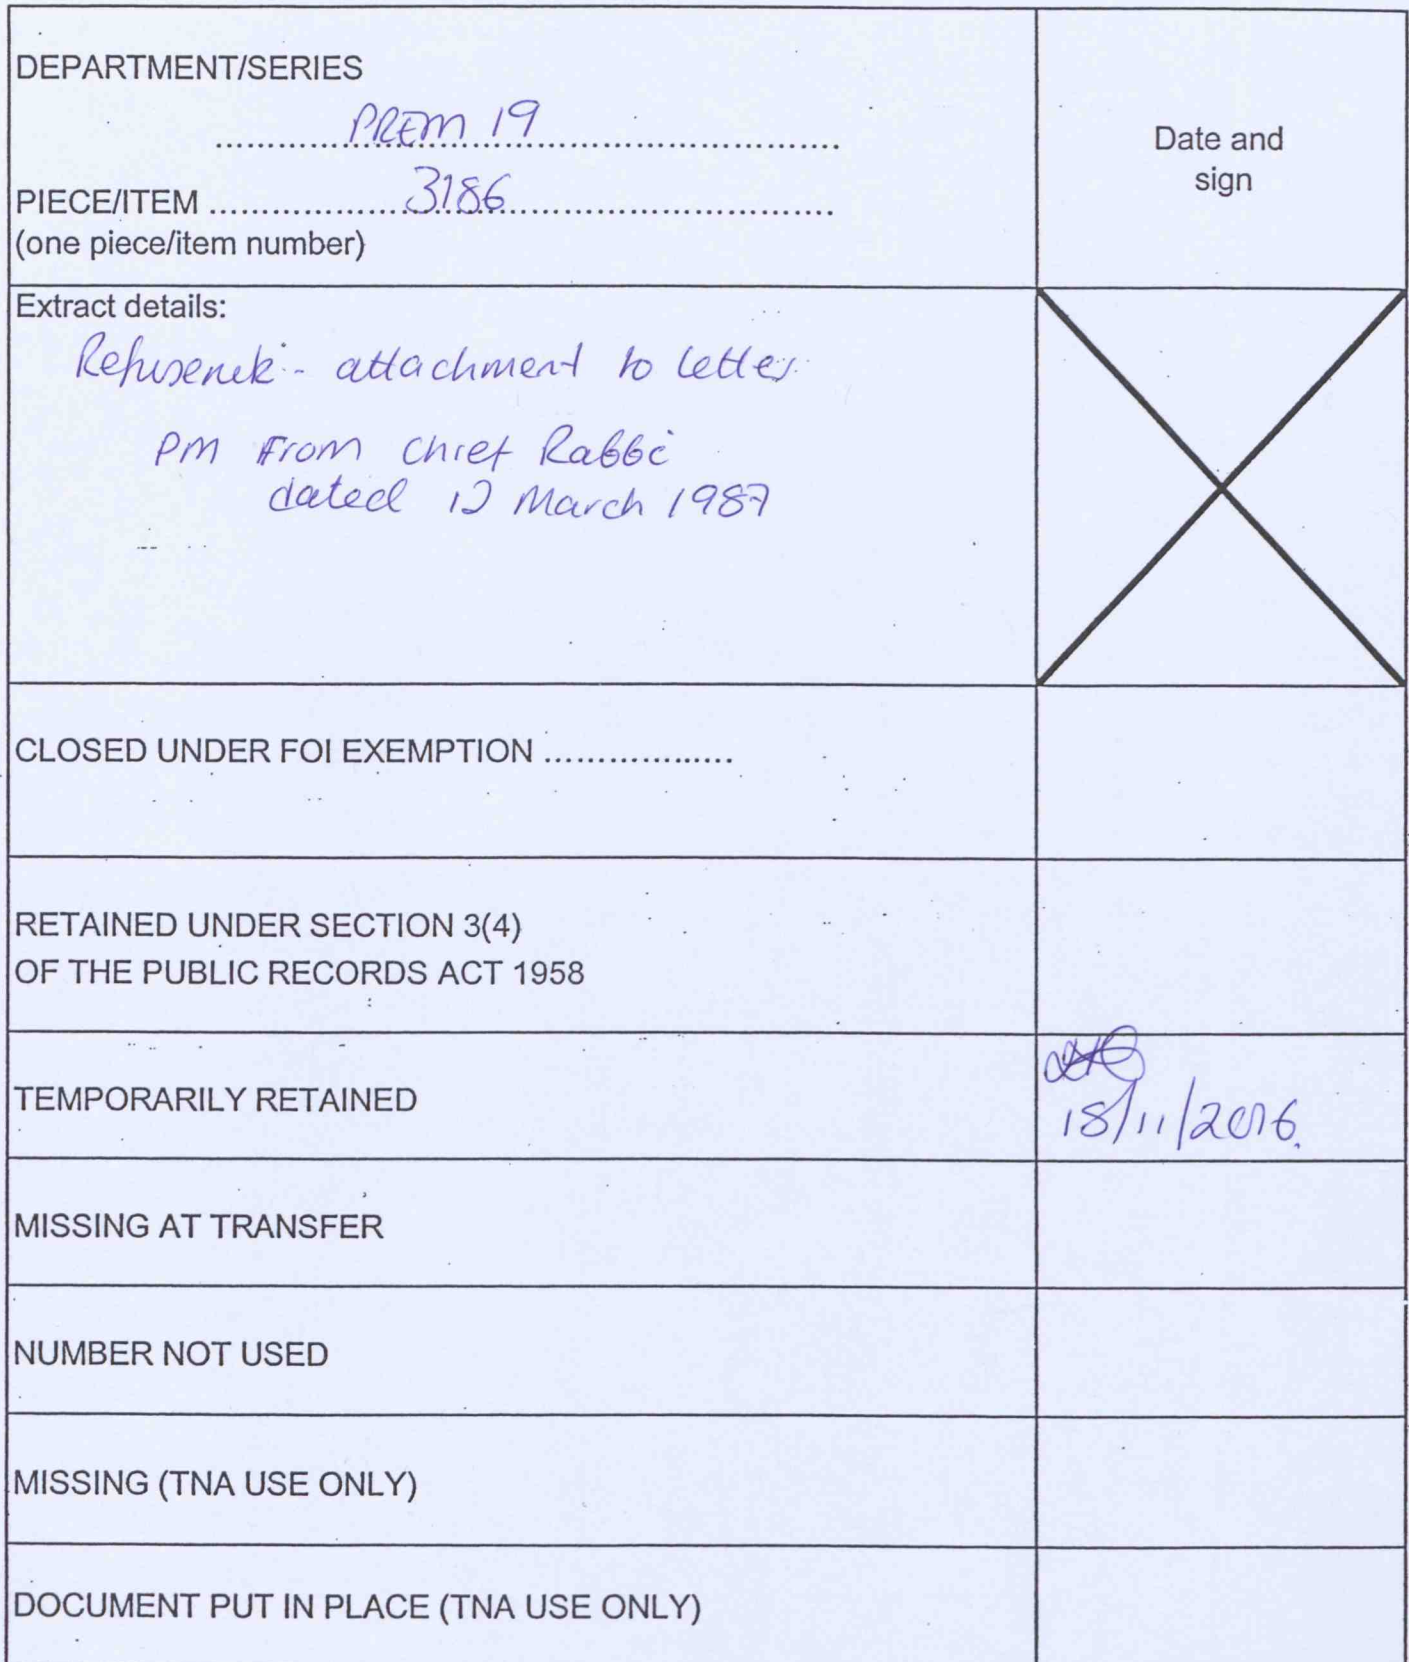 DEPARTMENT/SERIES
PREM 19
Date and
sign
PIECE/ITEM ........ 3186 ........
(one piece/item number)
Extract details:
Refusenik - attachment to letter
PM From Chief Rabbi
dated 12 March 1987
CLOSED UNDER FOI EXEMPTION ..................
RETAINED UNDER SECTION 3(4)
OF THE PUBLIC RECORDS ACT 1958
TEMPORARILY RETAINED
18/11/2016.
MISSING AT TRANSFER
NUMBER NOT USED
MISSING (TNA USE ONLY)
DOCUMENT PUT IN PLACE (TNA USE ONLY)